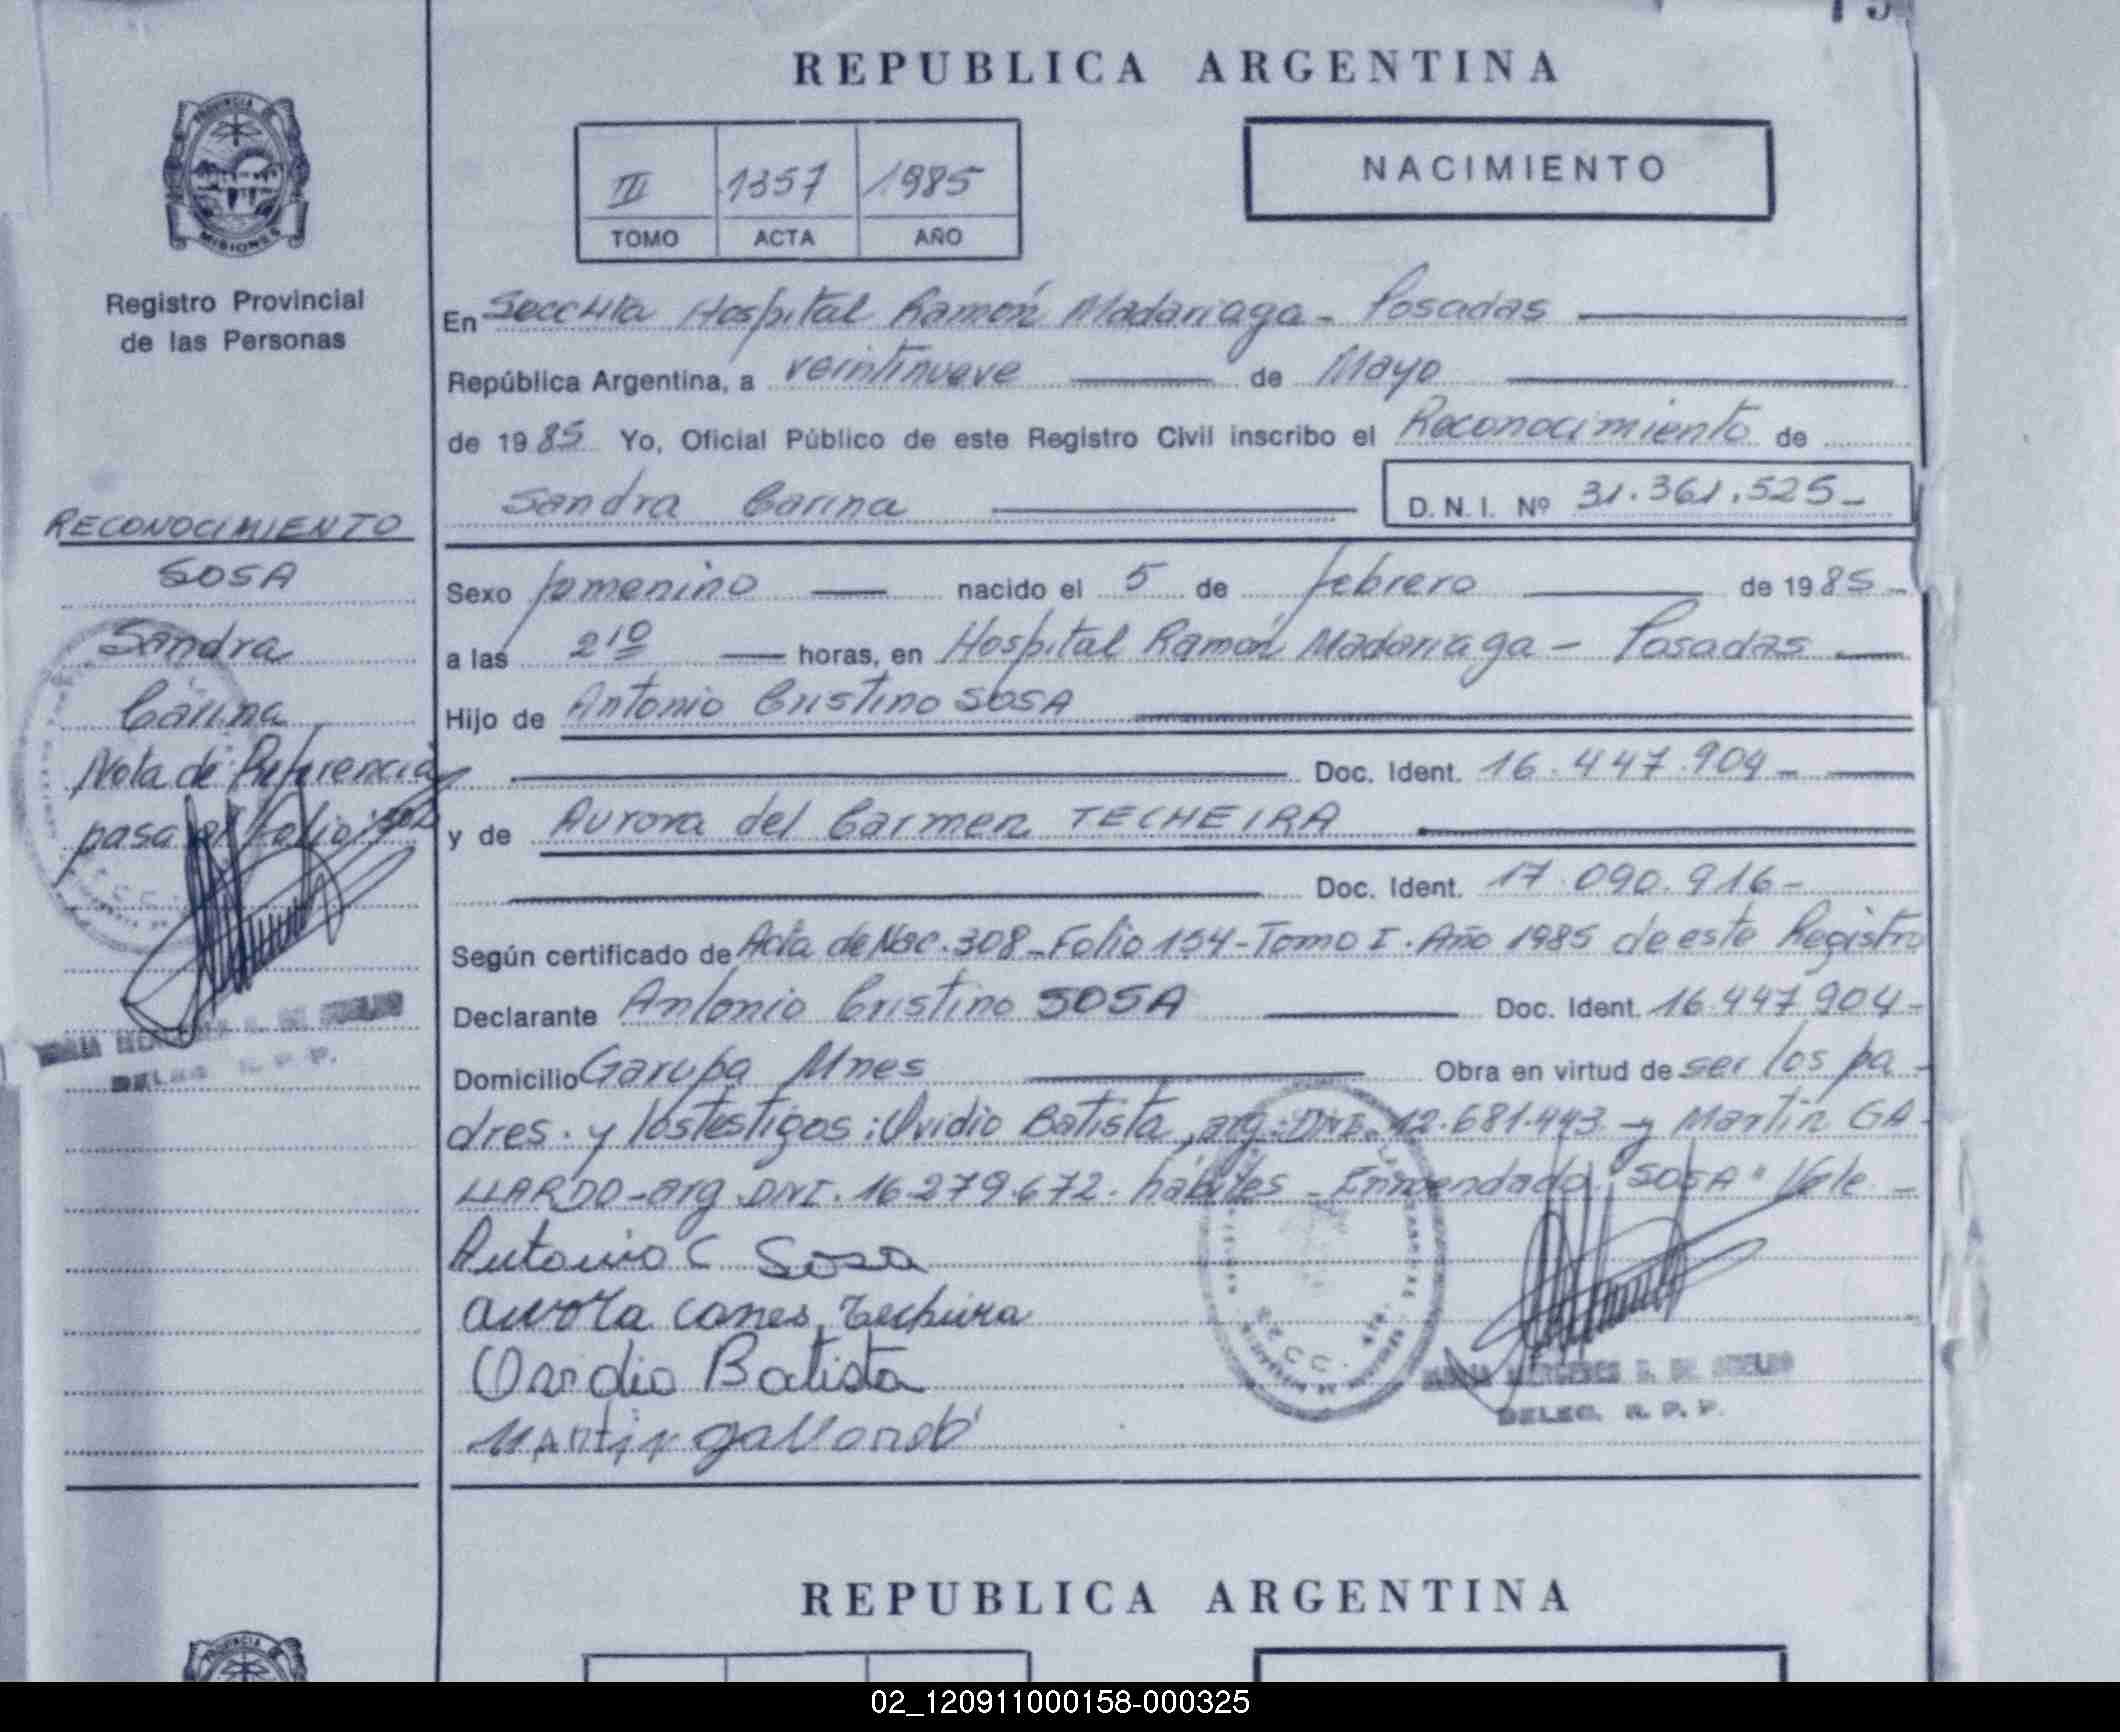 REPUBLICA ARGENTINA
PROVINCIA DE
MISIONES
Registro Provincial
de las Personas
III 1357 1985
TOMO ACTA AÑO
NACIMIENTO
En Secc 4ta Hospital Ramón Madariaga - Posadas
República Argentina, a veintinueve de Mayo
de 1985 Yo, Oficial Público de este Registro Civil inscribo el Reconocimiento de
Sandra Carina D.N.I. Nº 31.361.525-
RECONOCIMIENTO
SOSA
Sandra
Carina
Nota de Referencia
pasa al folio
Sexo femenino nacido el 5 de febrero de 1985-
a las 2 10 horas, en Hospital Ramón Madariaga - Posadas
Hijo de Antonio Cristino SOSA
Doc. Ident. 16.447.904-
y de Aurora del Carmen TECHEIRA
Doc. Ident. 17.090.916-
Según certificado de Acta de Nac. 308-Folio 154-Tomo I. Año 1985 de este Registro
Declarante Antonio Cristino SOSA Doc. Ident. 16.447.904-
Domicilio Garupa Mnes Obra en virtud de ser los pa-
dres. y los testigos: Ovidio Batista, arg. DNI. 12.681.443 - y Martín GA-
LLARDO-arg. DNI. 16.279.672. hábiles - Enmendado "SOSA" Vale -
Antonio C Sosa
Techeira
Ovidio Batista
Martin gallardo
DELEG. R. P. P.
DELEG. R. P. P.
REPUBLICA ARGENTINA
PROVINCIA DE
02_120911000158-000325